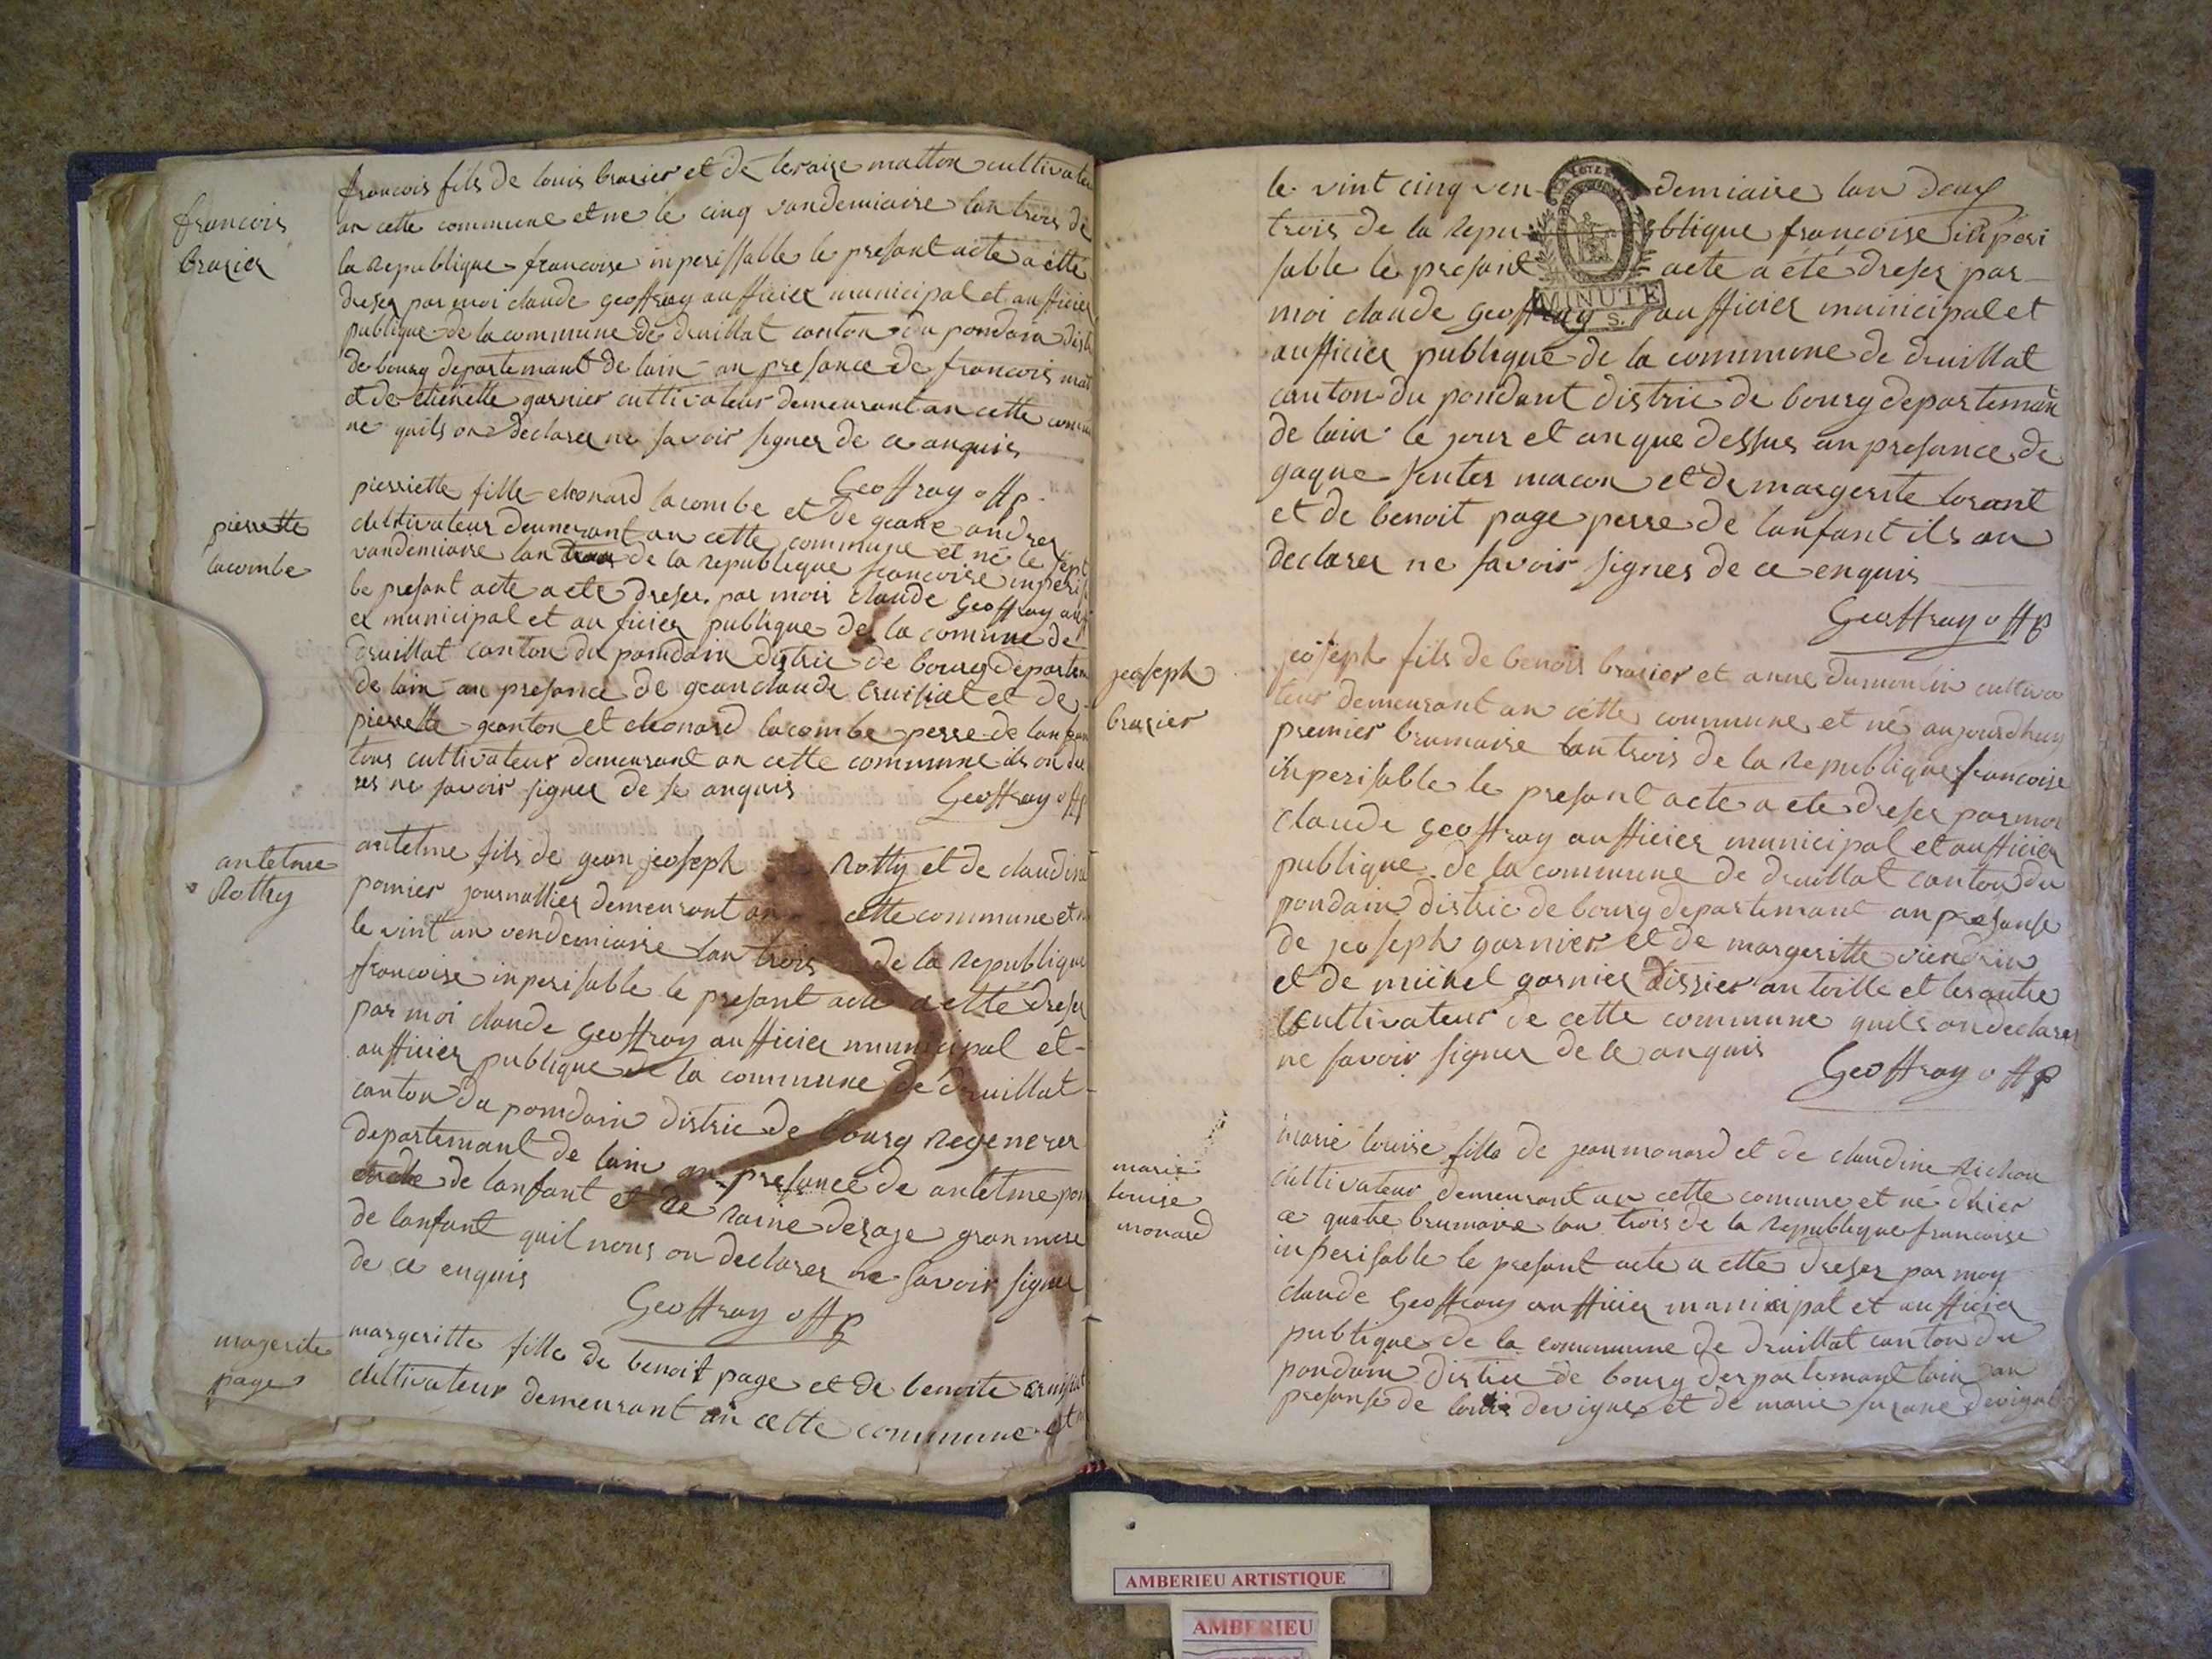 francois
brasier
francois fils de louis brasier et de teraise matton cultivateu
an cette commune et ne le cinq vandemiaire lan trois de
la republique francoise inperissable le presant acte a etté
dreser par moi claude geoffray aufficier municipal et aufficier
publique de la commune de druillat canton du pondain distr
de bourg departemant de lain an presance de francois mat
et de etienette garnier cultivateur demeurant an cette commu
ne quils on declarer ne savoir signer de ce anquis
Geoffray offp
pierrette
lacombe
pierriette fille eleonard lacombe et de geane andrer
cultivateur demeurant an cette commune et né le sept
vandemiaire lan trois de la republique francoise inperis
le presant acte a ete dreser par moi claude Geoffray auff
er municipal et auficier publique de la comune de
druillat canton du pondain distric de bourg departem
de lain an presance de geanclaude cruisiat et de
pierrette geanton et eleonard lacombe perre de lanfan
tous cultivateur demeurant an cette commune ils on dec
rer ne savoir signer de se anquis
Geoffray offp
antelme
Rotty
antelme fils de gean jeoseph Rotty et de claudine
pomier journallier demeurant an cette commune et n
le vint un vendemiaire lan trois de la republique
francoise inperisable le presant acte a etté dreser
par moi claude Geoffray aufficier municipal et
aufficier publique de la commune de druillat
canton du pondain distric de bourg regenerer
departemant de lain an presance de antelme pom
oncle de lanfant et de raine desage granmere
de lanfant quil nous on declarer ne savoir signer
de ce enquis
Geoffray offp
magerite
page
margeritte fille de benoit page et de benoite cruisiat
cultivateur demeurant an cette commune et n
le vint cinq ven demiaire lan deux
trois de la repu blique francoise inperi
sable le presant acte a eté dreser par
MINUTE
S.
moi claude geoffray aufficier municipal et
aufficier publique de la commune de druillat
canton du pondant distric de bourg departeman
de lain le jour et an que dessus an presance de
gaque senter macon et de margerite lorant
et de benoit page perre de lanfant ils on
declarer ne savoir signer de ce enquis
Geoffray offp
jeoseph
brasier
jeoseph fils de benois brasier et anne dumoulin cultiva
teur demeurant an cette commune et né aujourdhuy
premier brumaire lan trois de la republique francoise
inperisable le presant acte a ete dreser par moi
claude Geoffray aufficier municipal et aufficier
publique de la commune de druillat canton du
pondain distric de bourg departemant an presanse
de jeoseph garnier et de margeritte viendrin
et de michel garnier tissier an toille et les autre
cultivateur de cette commune quils on declarer
ne savoir signer de ce anquis
Geoffray offp
marie
louise
monard
marie louise fille de jean monard et de claudine Richon
cultivateur demeurant an cette comune et né dhier
ce quatre brumaire lan trois de la republique francoise
inperisable le presant acte a etté dreser par moy
claude Geoffray aufficier municipal et aufficier
publique de la commune de druillat canton du
pondain distric de bourg departemant lain an
presanse de louis devigne et de marie susane devigne
AMBERIEU ARTISTIQUE
AMBERIEU